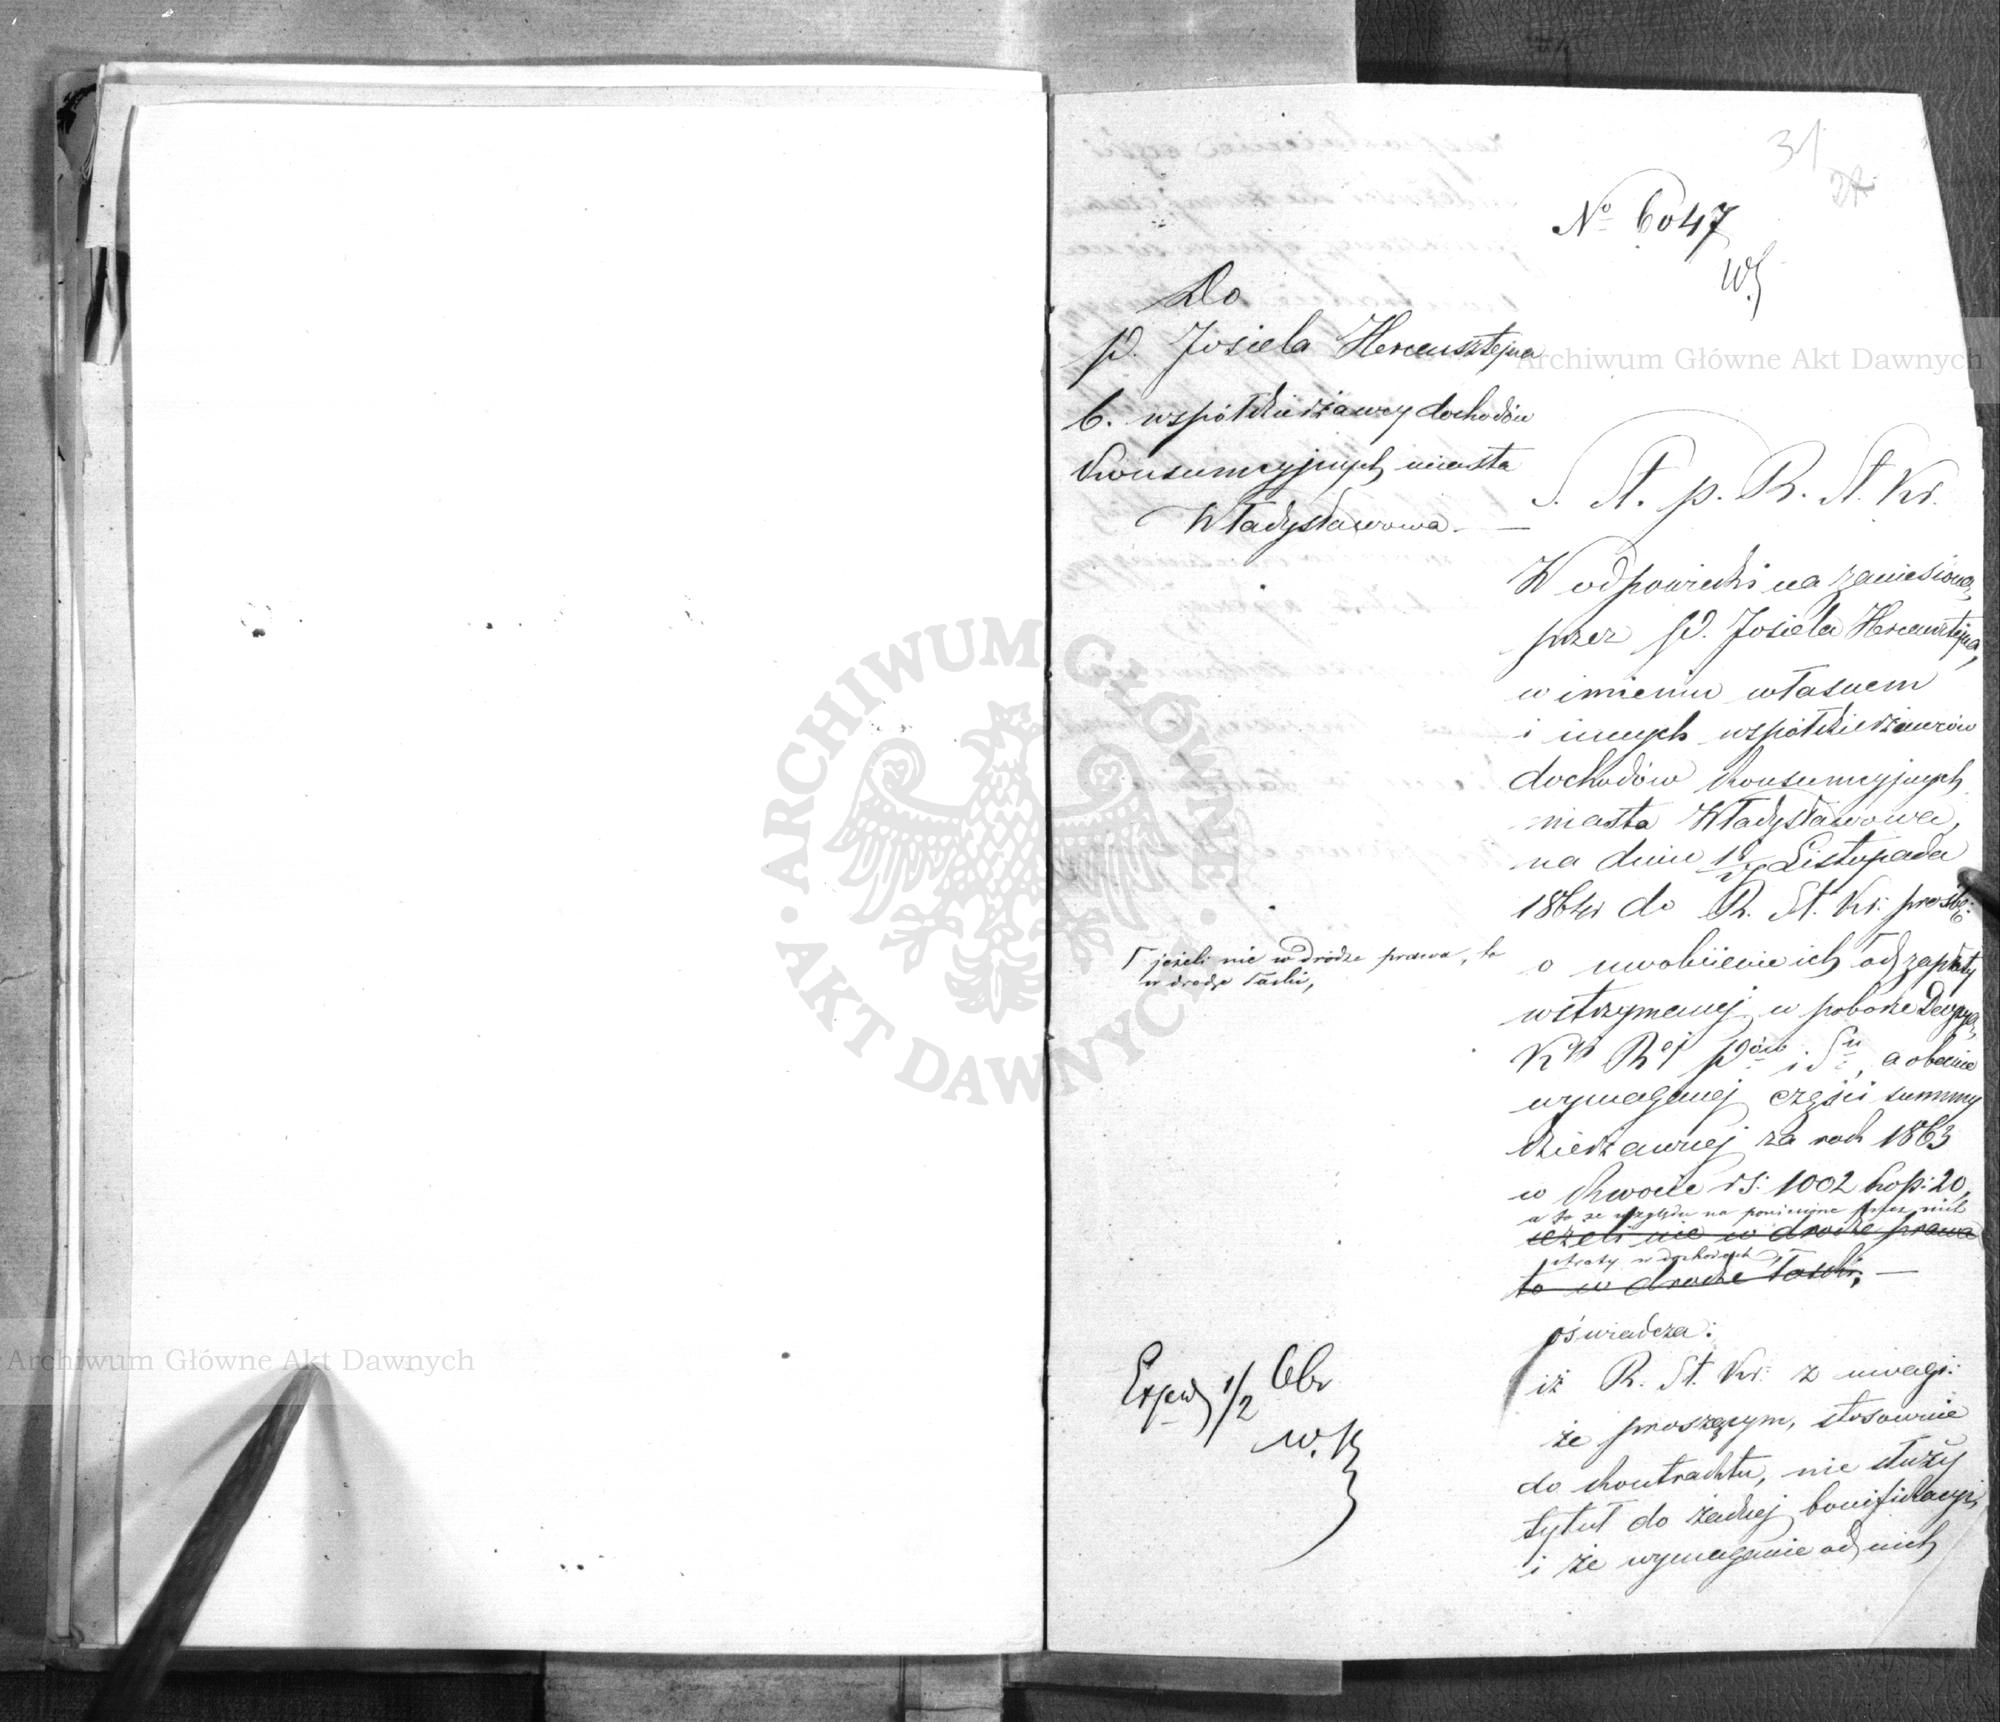 31
No 6047
Do
P. Josiela Hercensztejna
b. współdzierżawcy dochodów
Konsumcyjnych miasta
Władysławowa.
S. St. p. R. St. Kr.
W odpowiedzi na zaniesioną
przez P. Josiela Hercensztejna,
w imieniu własnem
i innych współdzierżawców
dochodów Konsumcyjnych
miasta Władysławowa,
na dniu Listopada
1864r do R. St. Kr: prośbę:
o uwolnienie ich od zapłaty
wstrzymanej w poborze Decyzyą
K R i S, a obecnie
wymaganej części summy
dzierżawnej za rok 1863
w kwocie rs: 1002 kop: 20,
a to ze względu na poniesione przez nich
jeżeli nie w drodze prawa
straty w dochodach,
to w drodze łaski,
jeżeli nie w drodze prawa, to
w drodze łaski,
oświadcza:
iż R. St. Kr: z uwagi:
że proszącym, stosownie
do kontraktu, nie służy
tytuł do żadnej bonifikacyi,
i że wymaganie od nich
Archiwum Główne Akt Dawnych
Archiwum Główne Akt Dawnych
ARCHIWUM GŁÓWNE · AKT DAWNYCH ·